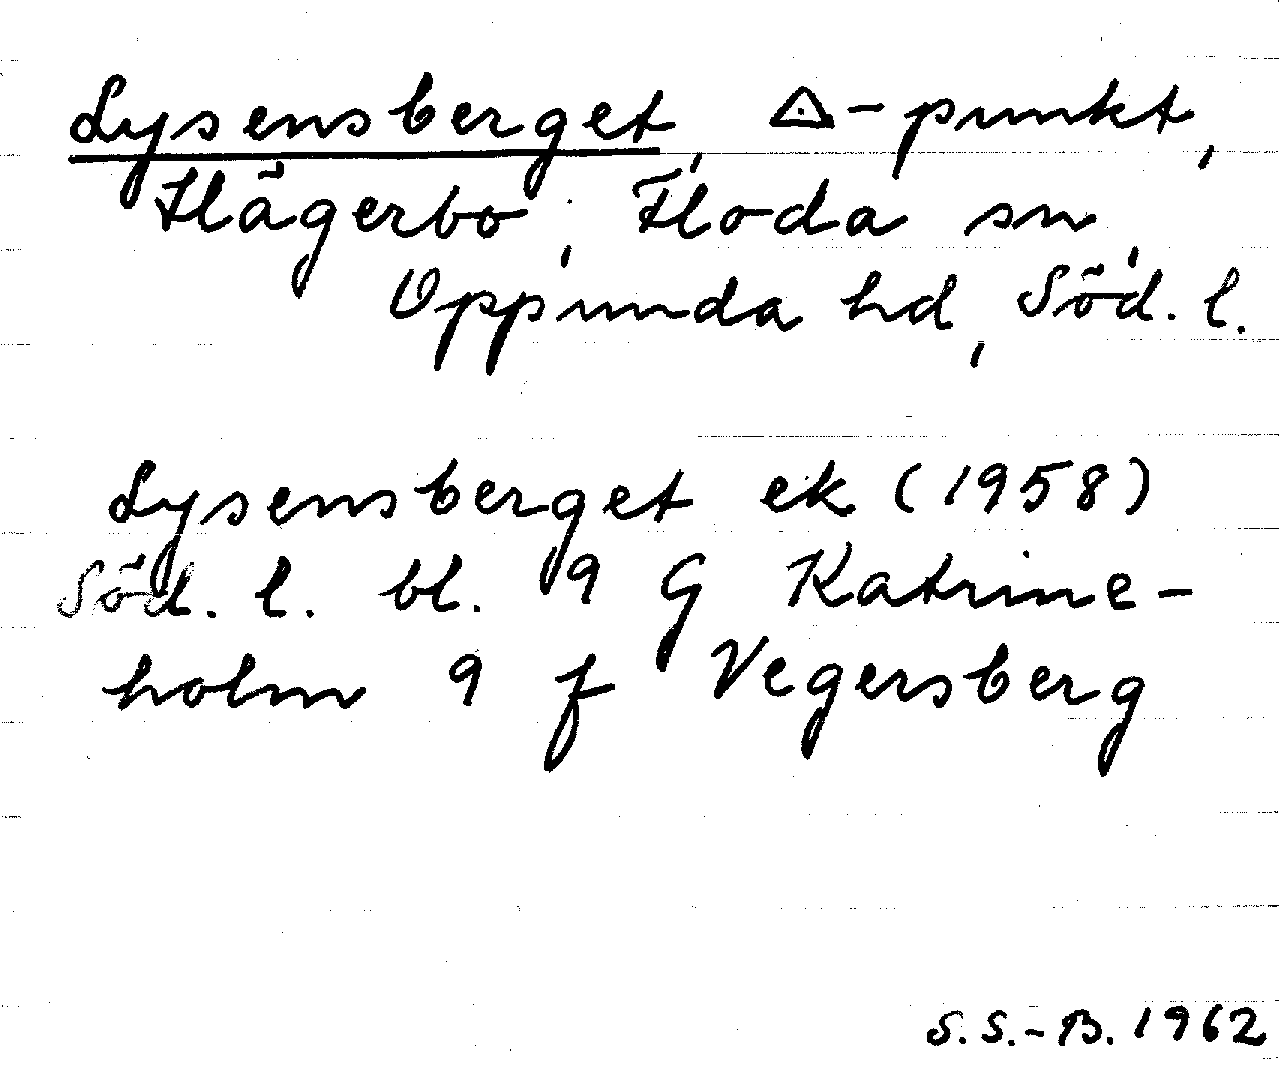 Lysensberget, △-punkt,
Hägerbo, Floda sn,
Oppunda hd, Söd. l.
Lysensberget ek (1958)
Söd. l. bl. 9 G Katrine-
holm 9 f Vegersberg
S.S.-B. 1962